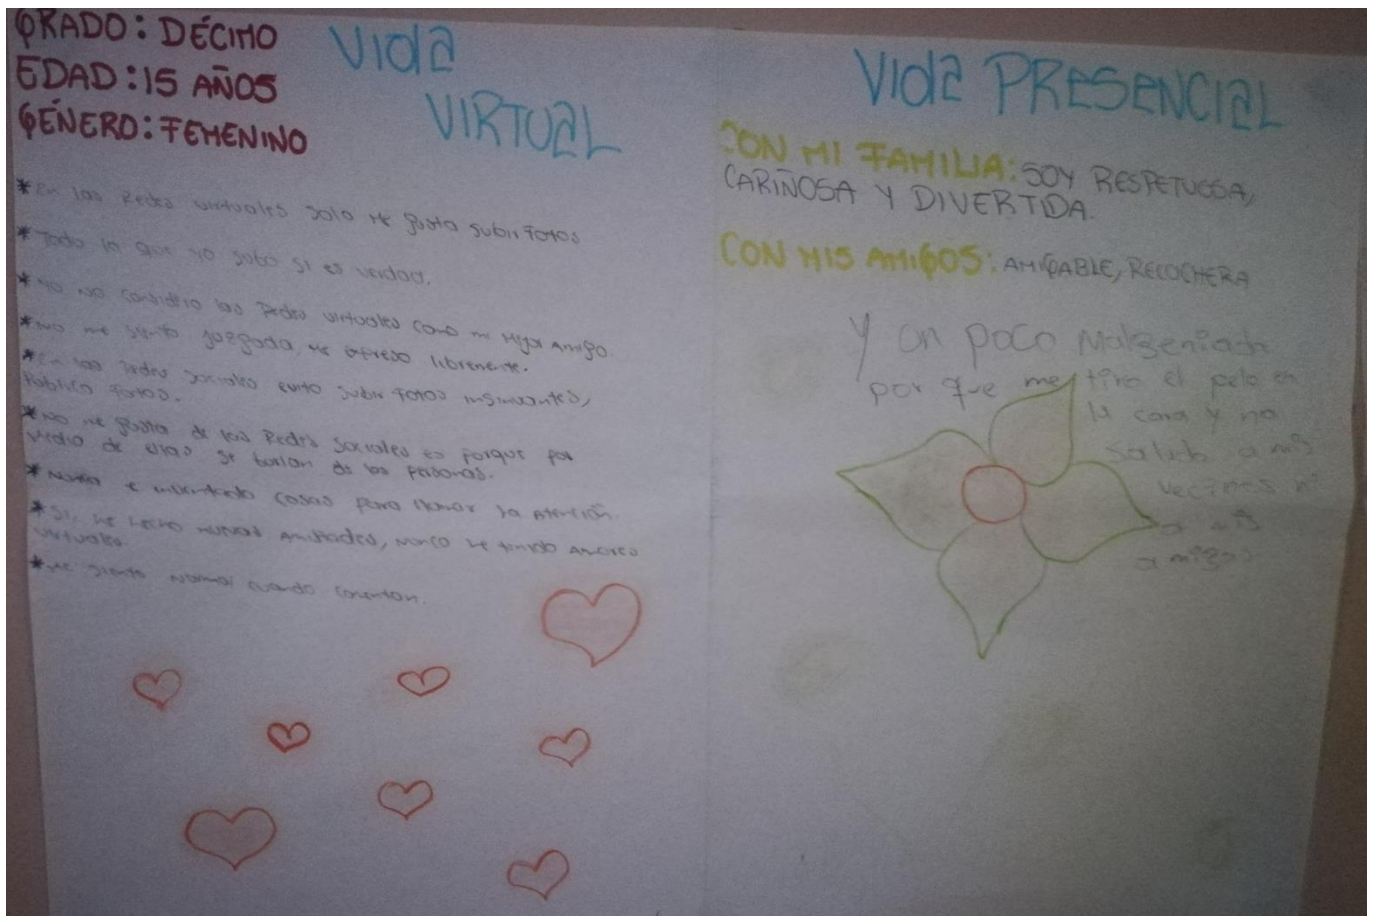 GRADO: DÉCIMO
EDAD: 15 AÑOS
GÉNERO: FEMENINO
VIDA
VIRTUAL
*En las Redes virtuales solo me gusta subir fotos
*Todo lo que yo subo si es verdad.
*Yo no considero las Redes virtuales como mi Mejor Amigo.
*No me siento juzgada, me expreso libremente.
*En las redes sociales evito subir fotos insinuantes,
Publico fotos.
*No me gusta de las Redes Sociales es porque por
Medio de ellas se burlan de las personas.
*Nunca e inventado cosas para llamar la atención.
*Si, he hecho nuevas Amistades, nunca he tenido Amores
virtuales.
*Me siento normal cuando comentan.
VIDA PRESENCIAL
CON MI FAMILIA: SOY RESPETUOSA,
CARIÑOSA Y DIVERTIDA.
CON MIS AMIGOS: AMIGABLE, RECOCHERA
Y un poco Malgeniada
por que me tiro el pelo en
la cara y no
saludo a mis
vecinos ni
a mis
amigos